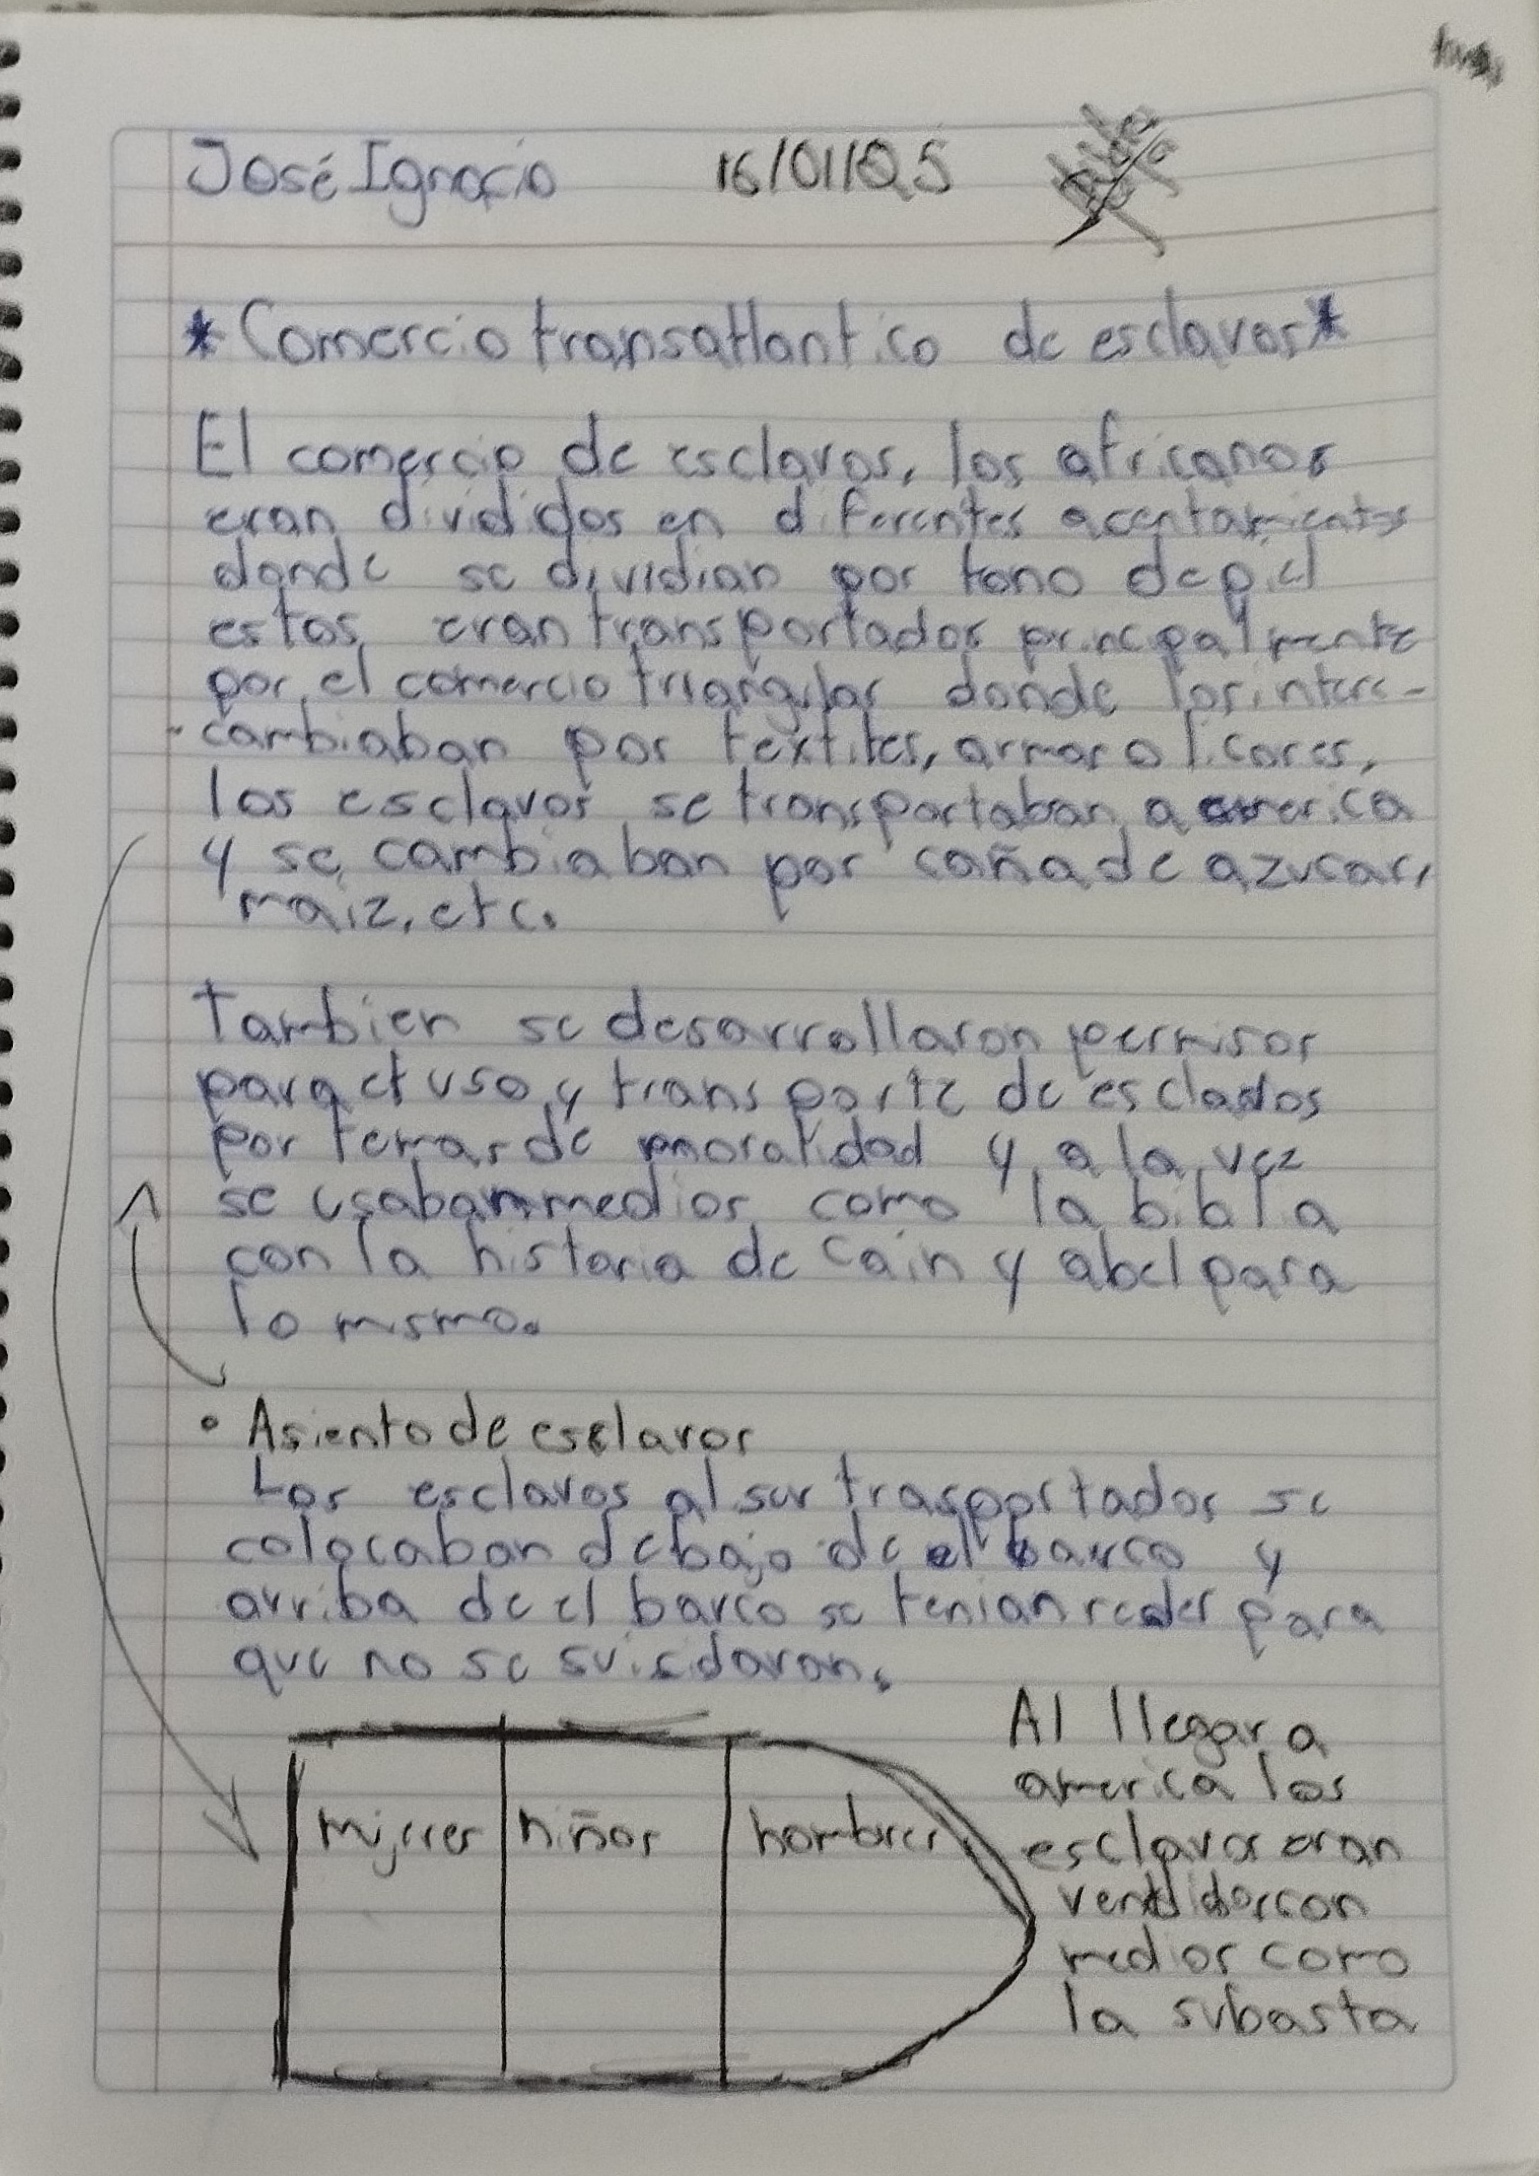 José Ignacio 16/01/025
*Comercio transatlantico de esclavos*
El comercio de esclavos, los africanos
eran divididos en diferentes acentamientos
donde se dividian por tono de piel
estos eran transportados principalmente
por el comercio triangular donde los interc-
-cambiaban por textiles, armas o licores,
los esclavos se transportaban a america
y se cambiaban por caña de azucar,
maiz, etc.
Tambien se desarrollaron permisos
para el uso y transporte de esclados
por temas de moralidad y a la vez
se usaban medios como la biblia
con la historia de cain y abel para
lo mismo.
• Asiento de esclavos
Los esclavos al ser trasportados se
colocaban debajo de el barco y
arriba de el barco se tenian redes para
que no se suicidaran.
Al llegar a
america los
esclavos eran
vendidos con
medios como
la subasta
mujeres niños hombres